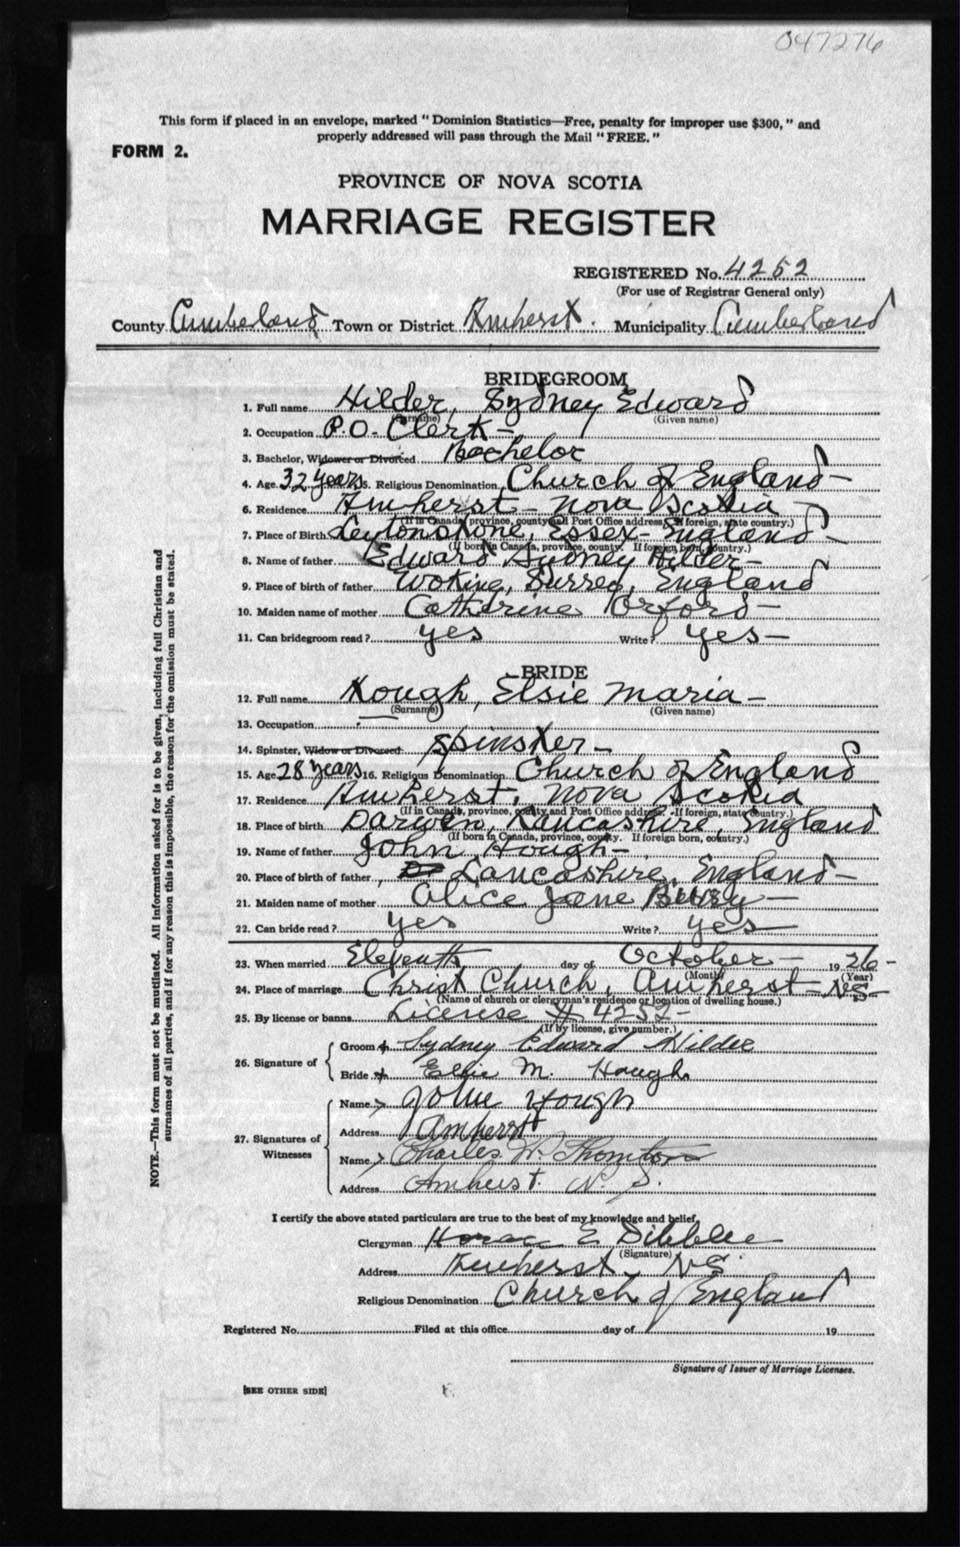 047276
This form if placed in an envelope, marked " Dominion Statistics—Free, penalty for improper use $300, " and
properly addressed will pass through the Mail " FREE. "
FORM 2.
PROVINCE OF NOVA SCOTIA
MARRIAGE REGISTER
REGISTERED No. 4252
(For use of Registrar General only)
County Cumberland Town or District Amherst. Municipality Cumberland
BRIDEGROOM
1. Full name Hilder, Sydney Edward
(Surname) (Given name)
2. Occupation P.O. Clerk —
3. Bachelor, Widower or Divorced Bachelor
4. Age 32 years 5. Religious Denomination Church of England —
6. Residence Amherst — Nova Scotia —
(If in Canada, province, county and Post Office address. If foreign, state country.)
7. Place of Birth Leytonstone, Essex — England —
(If born in Canada, province, county. If foreign born, country.)
8. Name of father Edward Sydney Hilder —
9. Place of birth of father Woking, Surrey, England
10. Maiden name of mother Catherine Orford —
11. Can bridegroom read? yes Write? yes —
BRIDE
12. Full name Hough, Elsie Maria —
(Surname) (Given name)
13. Occupation —
14. Spinster, Widow or Divorced Spinster —
15. Age 28 years 16. Religious Denomination Church of England
17. Residence Amherst, Nova Scotia
(If in Canada, province, county and Post Office address. If foreign, state country.)
18. Place of birth Darwen, Lancashire, England
(If born in Canada, province, county. If foreign born, country.)
19. Name of father John Hough —
20. Place of birth of father, Lancashire, England —
21. Maiden name of mother Alice Jane Berry —
22. Can bride read? yes Write? yes —
23. When married Eleventh day of October — 1926 —
(Month) (Year)
24. Place of marriage Christ Church, Amherst — N.S. —
(Name of church or clergyman's residence or location of dwelling house.)
25. By license or banns License # 4252 —
(If by license, give number.)
26. Signature of
Groom Sydney Edward Hilder
Bride Elsie M. Hough
27. Signatures of Witnesses
Name John Hough
Address Amherst
Name Charles W. Thornton
Address Amherst. N. S.
I certify the above stated particulars are true to the best of my knowledge and belief.
Clergyman Horace E Dibblee
(Signature)
Address Amherst, N.S.
Religious Denomination Church of England
Registered No. Filed at this office day of 19
Signature of Issuer of Marriage Licenses.
[SEE OTHER SIDE]
NOTE.—This form must not be mutilated. All information asked for is to be given, including full Christian and
surnames of all parties, and if for any reason this is impossible, the reason for the omission must be stated.